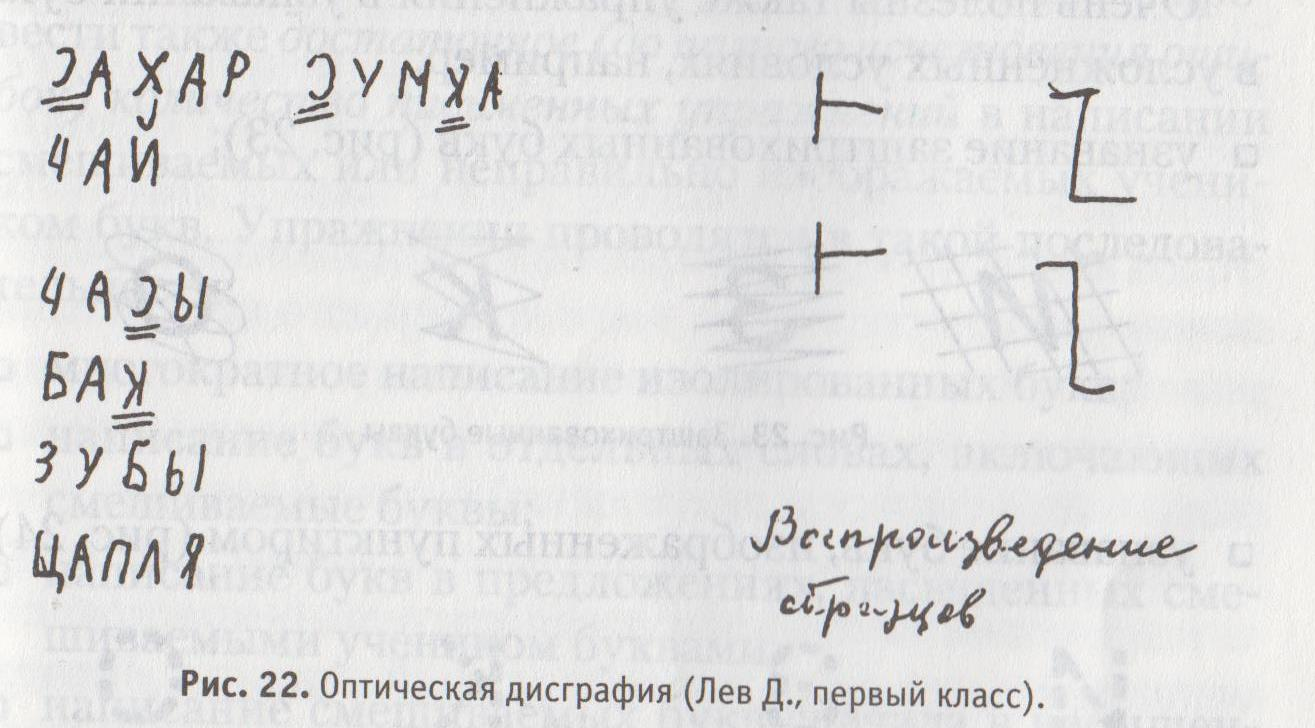 ƆАХАР ƆУМʞА
ЧАЙ
ЧАƆЫ
БАʞ
ЗУБЫ
ЩАПЛЯ
Воспроизведение
образцов
Рис. 22. Оптическая дисграфия (Лев Д., первый класс).